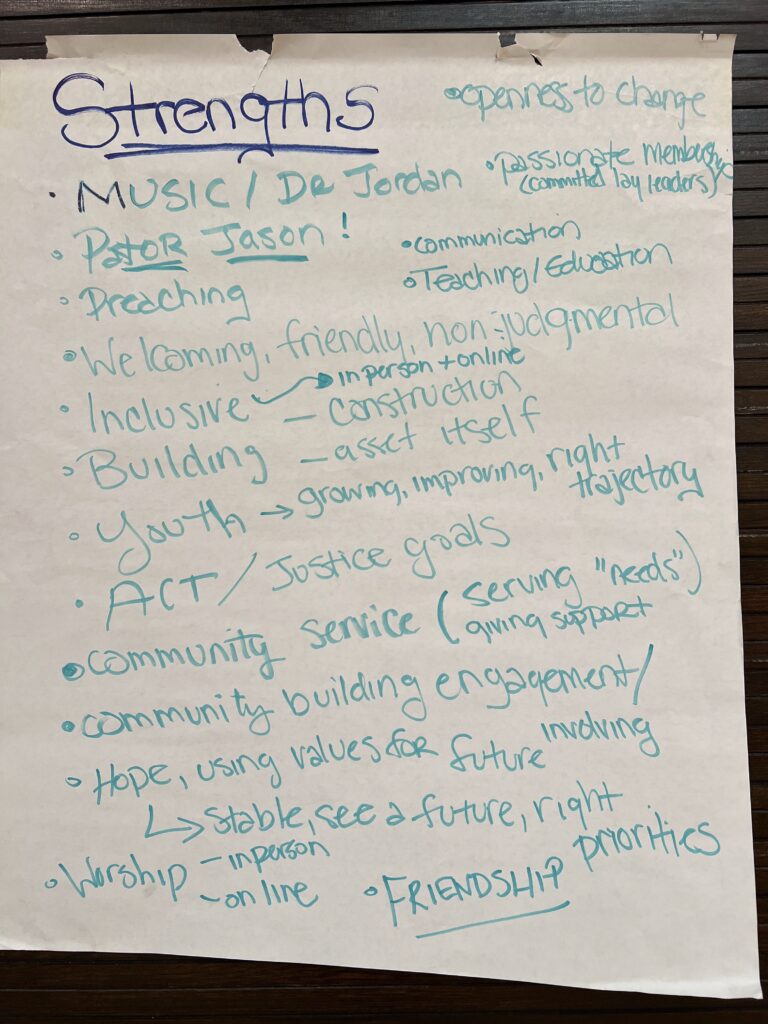 Strengths
• openness to change
• MUSIC / DR Jordan
• passionate membership
(committed lay leaders)
• PastoR Jason!
• communication
• Teaching/Education
• Preaching
• Welcoming, friendly, non-judgmental
• Inclusive
• in person + online
• Building
- construction
- asset itself
• Youth → growing, improving, right
trajectory
• ACT / Justice goals
• community service (serving "needs")
giving support
• community building engagement/
involving
• Hope, using values foR future
↳ stable, see a future, right
priorities
• Worship - in person
- online
• FRIENDSHIP